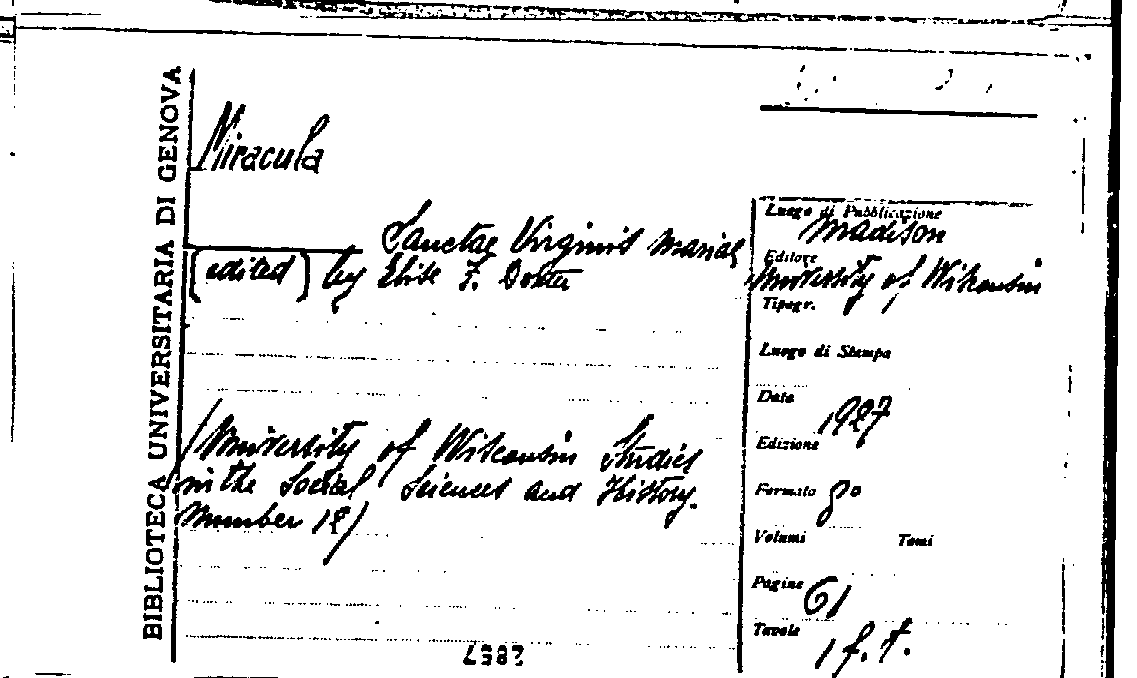 BIBLIOTECA UNIVERSITARIA DI GENOVA
Miracula
Sanctae Virginis Mariae
[edited] by Elise F. Dexter
(University of Wisconsin Studies
in the Social Sciences and History.
Number 12)
Luogo di Pubblicazione
Madison
Editore
University of Wisconsin
Tipogr.
Luogo di Stampa
Data 1927
Edizione
Formato 8°
Volumi Tomi
Pagine 61
Tavole 1 f.t.
2857